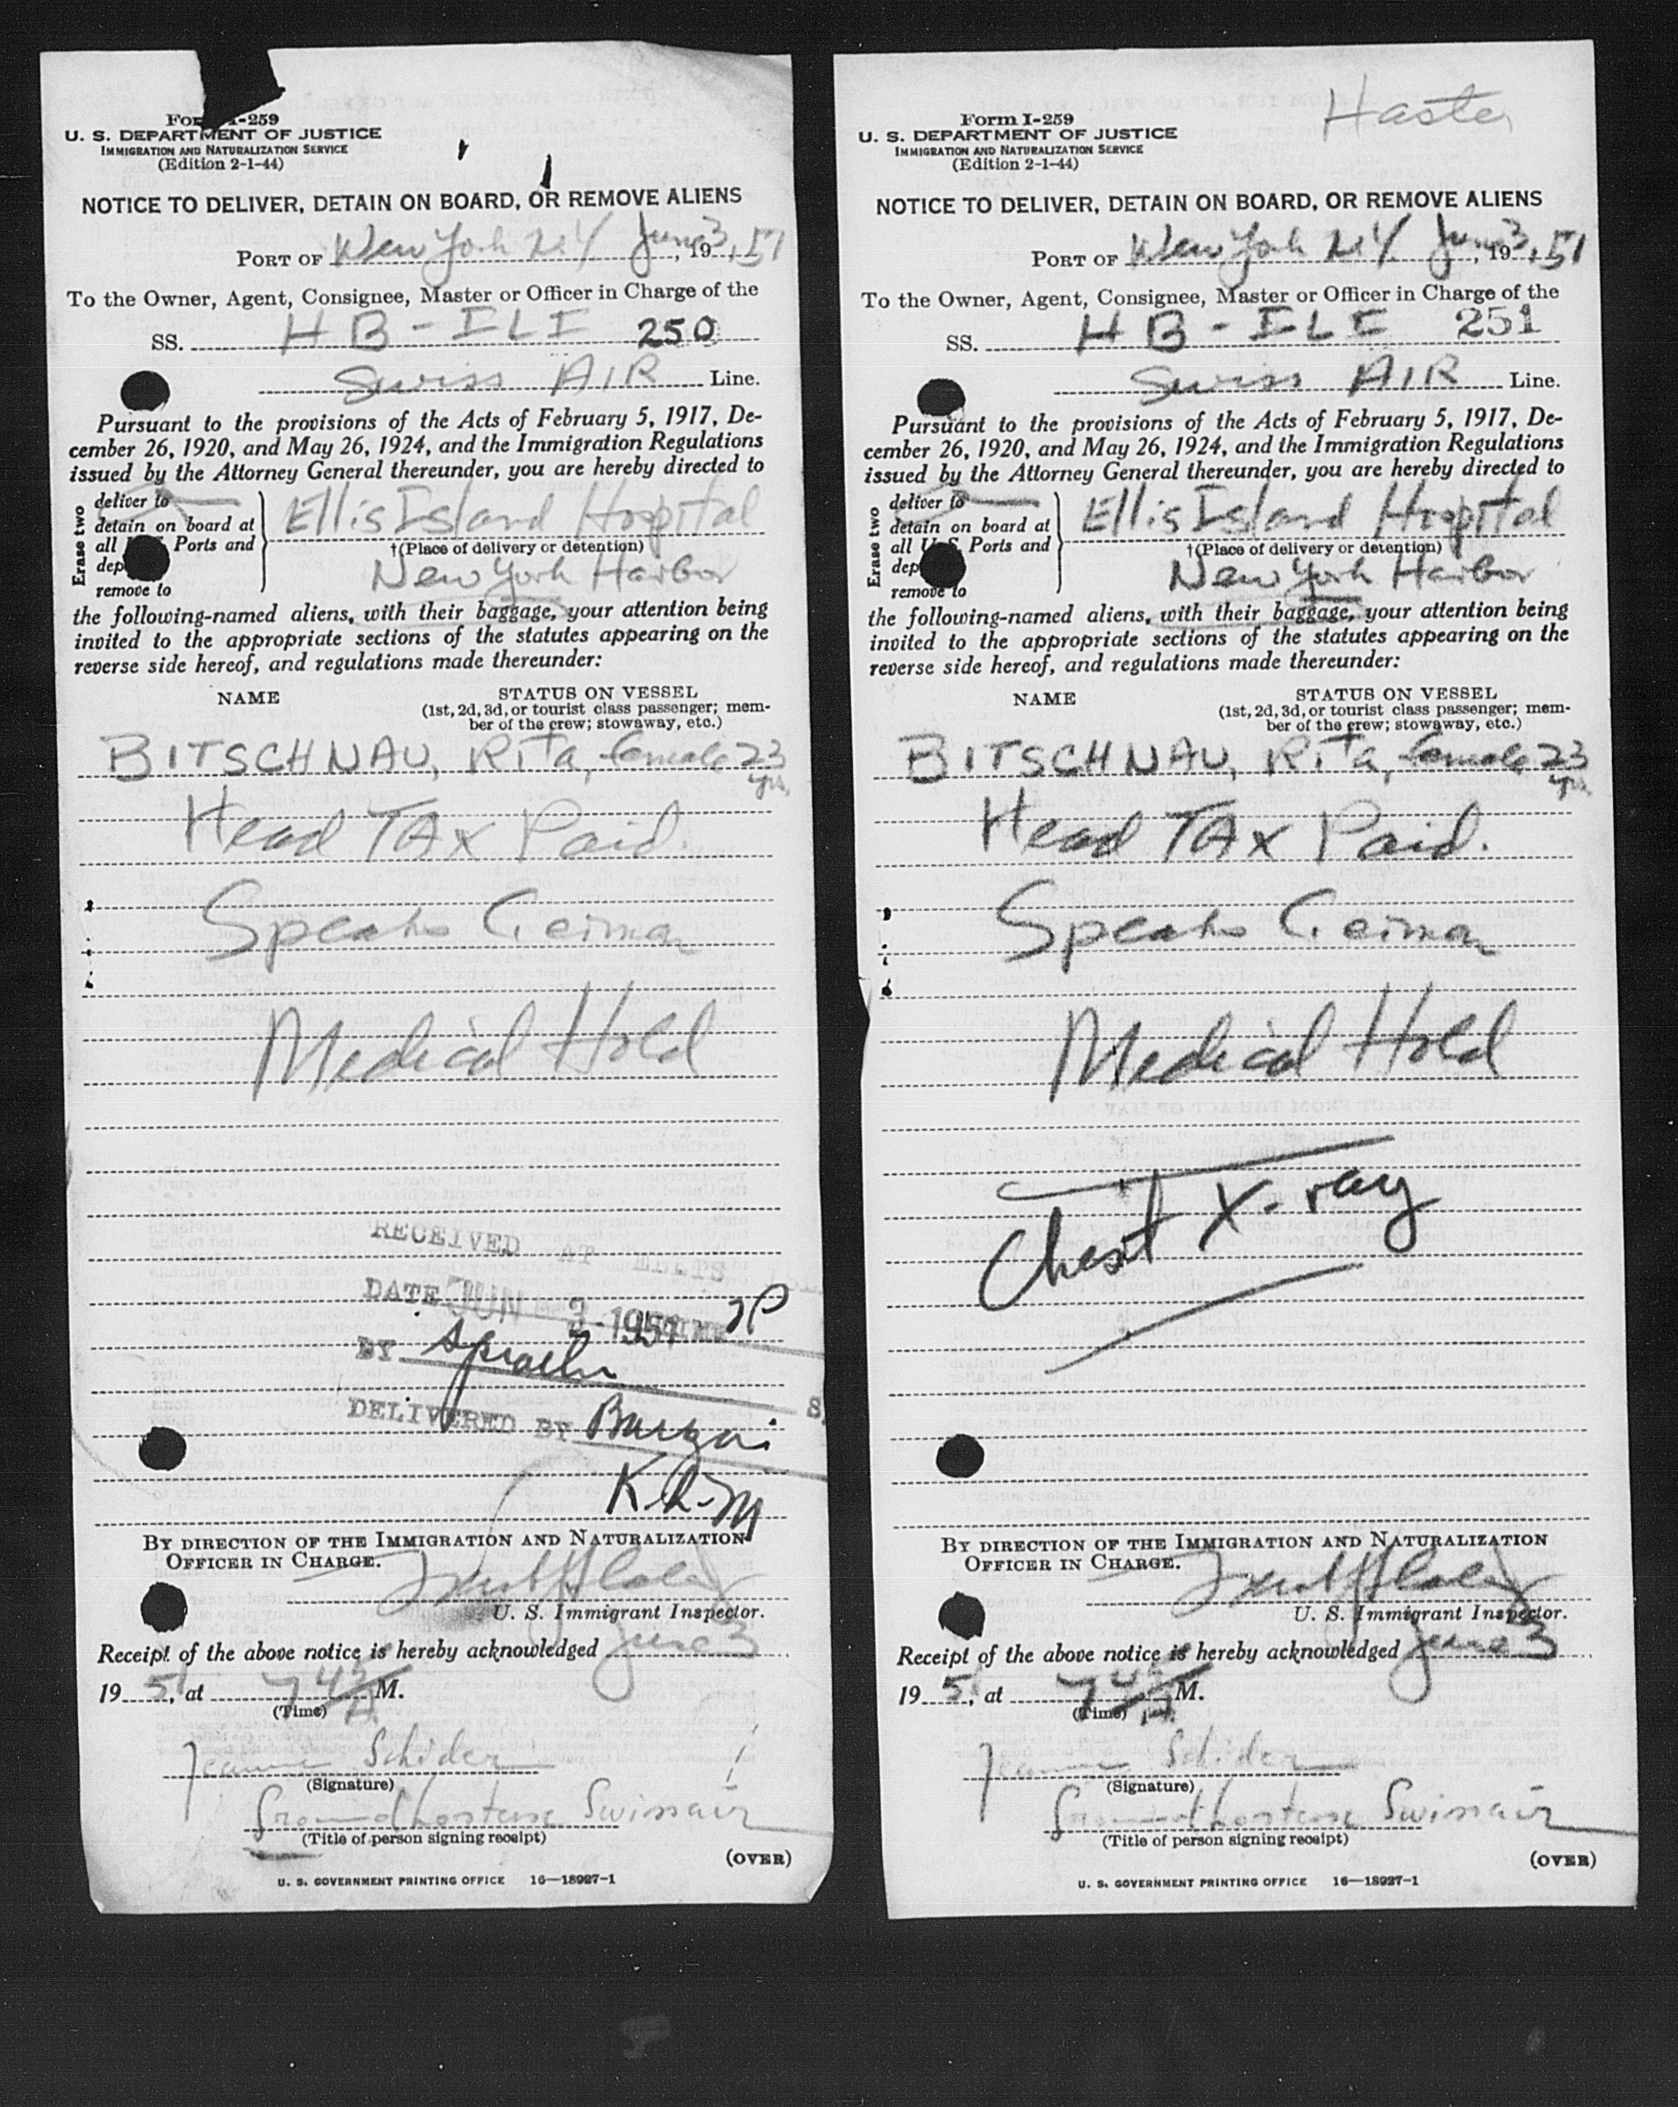 Form I-259
U. S. DEPARTMENT OF JUSTICE
IMMIGRATION AND NATURALIZATION SERVICE
(Edition 2-1-44)
NOTICE TO DELIVER, DETAIN ON BOARD, OR REMOVE ALIENS
PORT OF New York N.Y. June 3, 1951
To the Owner, Agent, Consignee, Master or Officer in Charge of the
SS. HB-ILI 250
Swiss AIR Line.
Pursuant to the provisions of the Acts of February 5, 1917, De-
cember 26, 1920, and May 26, 1924, and the Immigration Regulations
issued by the Attorney General thereunder, you are hereby directed to
Erase two
deliver to
detain on board at
all Ports and
dep
remove to
Ellis Island Hospital
†(Place of delivery or detention)
New York Harbor
the following-named aliens, with their baggage, your attention being
invited to the appropriate sections of the statutes appearing on the
reverse side hereof, and regulations made thereunder:
NAME STATUS ON VESSEL
(1st, 2d, 3d, or tourist class passenger; mem-
ber of the crew; stowaway, etc.)
BITSCHNAU, Rita, female 23
yrs.
Head TAx Paid.
Speaks German
Medical Hold
RECEIVED AT ELLIS
DATE JUN 3 - 1951
BY
DELIVERED BY
K.L.M
BY DIRECTION OF THE IMMIGRATION AND NATURALIZATION
OFFICER IN CHARGE.
U. S. Immigrant Inspector.
Receipt of the above notice is hereby acknowledged June 3
1951, at 7 45 A M.
(Time)
Jeanne Schider
(Signature)
Groundhostess Swissair
(Title of person signing receipt)
(OVER)
U. S. GOVERNMENT PRINTING OFFICE 16—18927-1
Form I-259
U. S. DEPARTMENT OF JUSTICE
IMMIGRATION AND NATURALIZATION SERVICE
(Edition 2-1-44)
NOTICE TO DELIVER, DETAIN ON BOARD, OR REMOVE ALIENS
PORT OF New York N.Y. June 3, 1951
To the Owner, Agent, Consignee, Master or Officer in Charge of the
SS. HB-ILI 251
Swiss AIR Line.
Pursuant to the provisions of the Acts of February 5, 1917, De-
cember 26, 1920, and May 26, 1924, and the Immigration Regulations
issued by the Attorney General thereunder, you are hereby directed to
Erase two
deliver to
detain on board at
all U. S. Ports and
dep
remove to
Ellis Island Hospital
†(Place of delivery or detention)
New York Harbor
the following-named aliens, with their baggage, your attention being
invited to the appropriate sections of the statutes appearing on the
reverse side hereof, and regulations made thereunder:
NAME STATUS ON VESSEL
(1st, 2d, 3d, or tourist class passenger; mem-
ber of the crew; stowaway, etc.)
BITSCHNAU, Rita, female 23
yrs.
Head TAx Paid.
Speaks German
Medical Hold
Chest X-ray
BY DIRECTION OF THE IMMIGRATION AND NATURALIZATION
OFFICER IN CHARGE.
U. S. Immigrant Inspector.
Receipt of the above notice is hereby acknowledged June 3
1951, at 7 45 A M.
(Time)
Jeanne Schider
(Signature)
Groundhostess Swissair
(Title of person signing receipt)
(OVER)
U. S. GOVERNMENT PRINTING OFFICE 16—18927-1